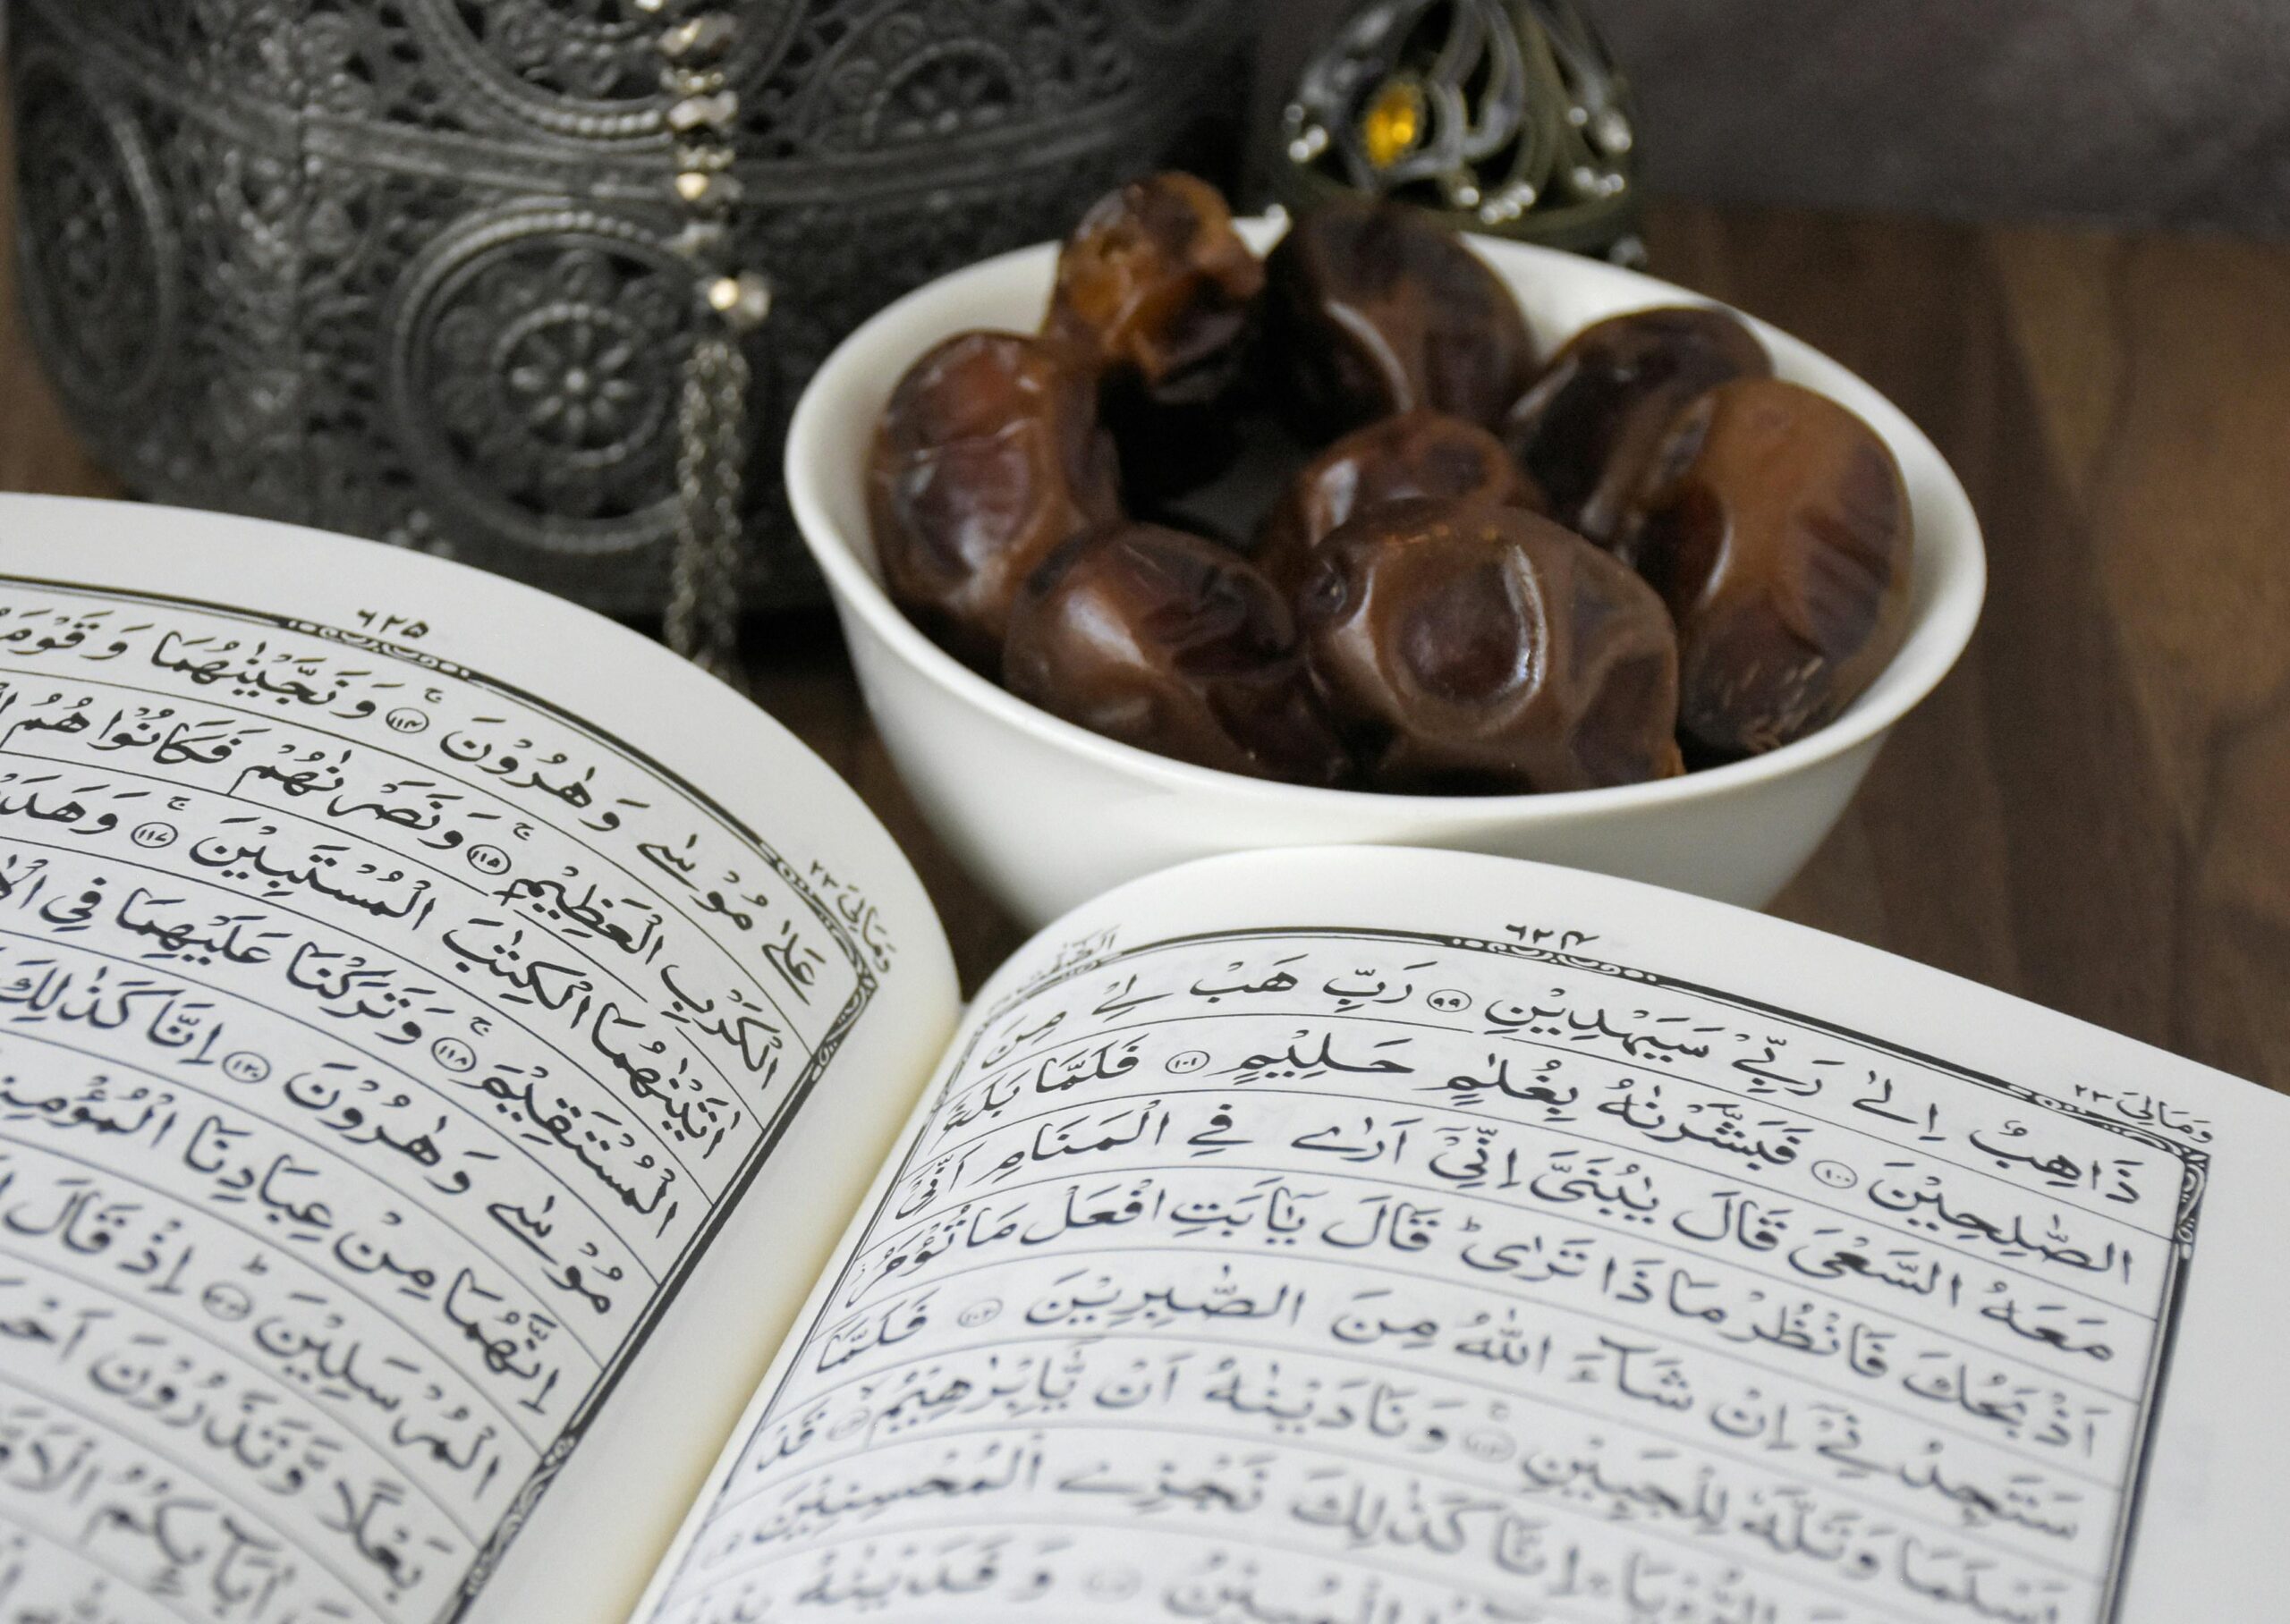 وَمَالِيَ ٢٣
٦٢٤
ذَاهِبٌ اِلٰى رَبِّيْ سَيَهْدِيْنِ ﴿٩٩﴾ رَبِّ هَبْ لِيْ مِنَ
الصّٰلِحِيْنَ ﴿١٠٠﴾ فَبَشَّرْنٰهُ بِغُلٰمٍ حَلِيْمٍ ﴿١٠١﴾ فَلَمَّا بَلَغَ
مَعَهُ السَّعْيَ قَالَ يٰبُنَيَّ اِنِّيْٓ اَرٰى فِي الْمَنَامِ اَنِّيْٓ
اَذْبَحُكَ فَانْظُرْ مَاذَا تَرٰى ؕ قَالَ يٰٓاَبَتِ افْعَلْ مَا تُؤْمَرُ
سَتَجِدُنِيْٓ اِنْ شَآءَ اللّٰهُ مِنَ الصّٰبِرِيْنَ ﴿١٠٢﴾ فَلَمَّآ
اَسْلَمَا وَتَلَّهٗ لِلْجَبِيْنِ ﴿١٠٣﴾ وَنَادَيْنٰهُ اَنْ يّٰٓاِبْرٰهِيْمُ ﴿١٠٤﴾ قَدْ
اِنَّا كَذٰلِكَ نَجْزِي الْمُحْسِنِيْنَ
وَفَدَيْنٰهُ
وَمَالِيَ ٢٣
٦٢٥
عَلٰى مُوْسٰى وَهٰرُوْنَ ﴿١١٤﴾ وَنَجَّيْنٰهُمَا وَقَوْمَهُمَا
الْكَرْبِ الْعَظِيْمِ ﴿١١٥﴾ وَنَصَرْنٰهُمْ فَكَانُوْا هُمُ
اٰتَيْنٰهُمَا الْكِتٰبَ الْمُسْتَبِيْنَ ﴿١١٧﴾
الْمُسْتَقِيْمَ ﴿١١٨﴾ وَتَرَكْنَا عَلَيْهِمَا فِي
مُوْسٰى وَهٰرُوْنَ ﴿١٢٠﴾ اِنَّا كَذٰلِكَ
اِنَّهُمَا مِنْ عِبَادِنَا الْمُؤْمِنِيْنَ
الْمُرْسَلِيْنَ ﴿١٢٣﴾ اِذْ قَالَ
بَعْلًا وَّتَذَرُوْنَ
اٰبَآئِكُمُ